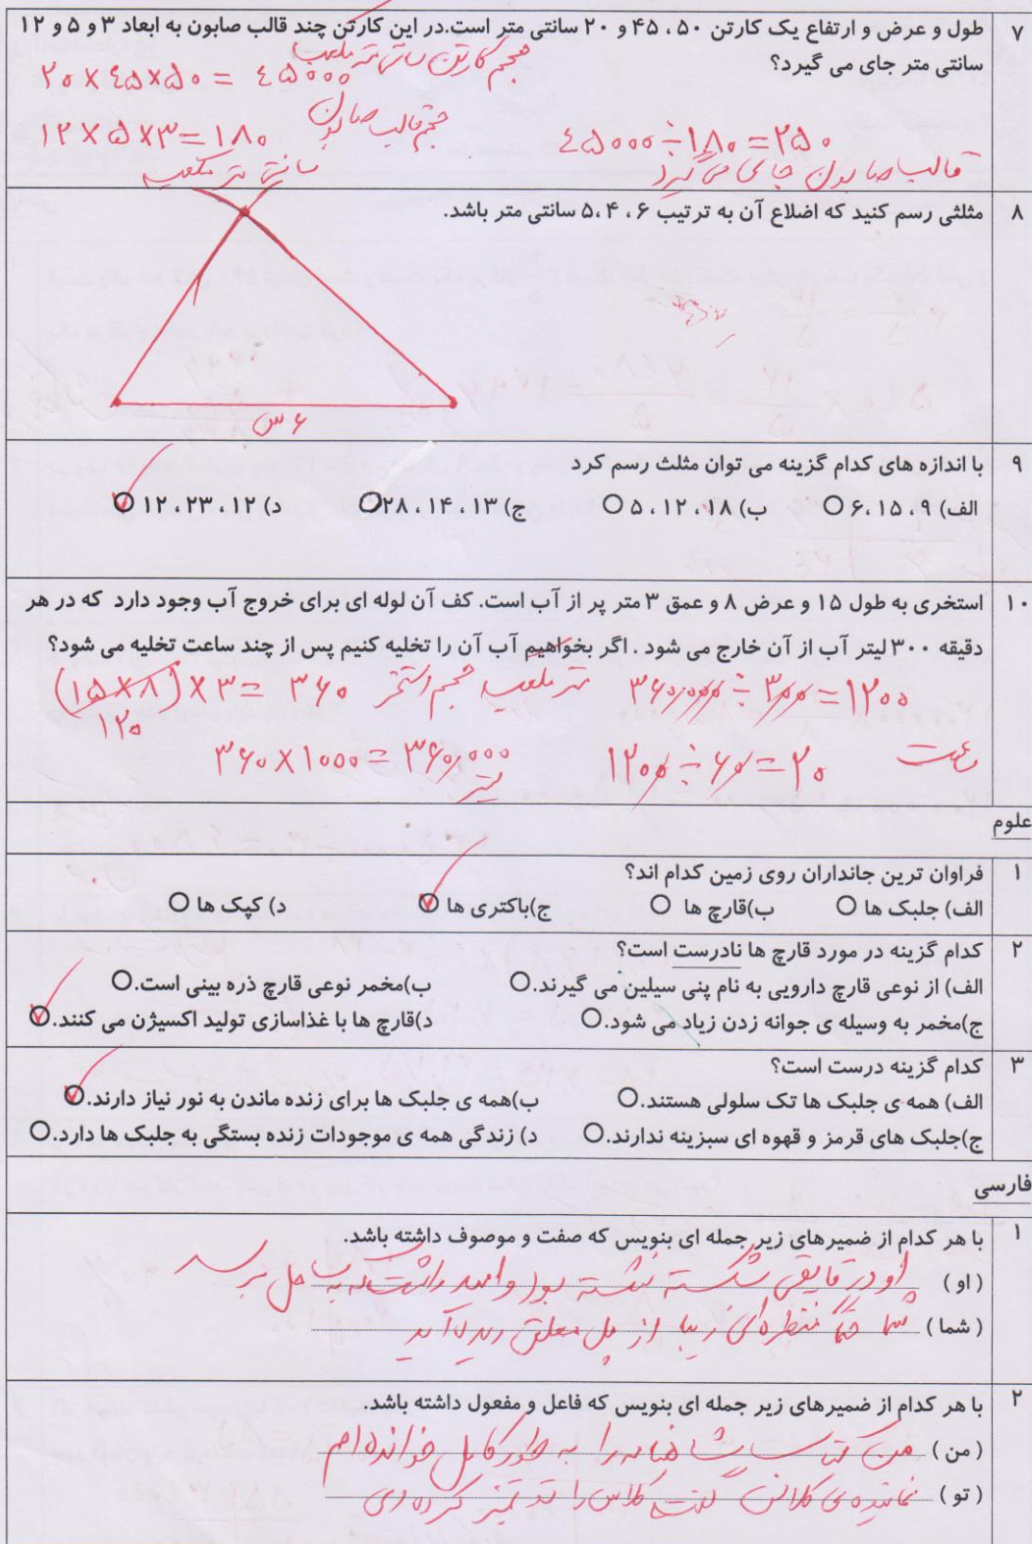 ۷ طول و عرض و ارتفاع یک کارتن ۵۰ ، ۴۵ و ۲۰ سانتی متر است.در این کارتن چند قالب صابون به ابعاد ۳ و ۵ و ۱۲
سانتی متر جای می گیرد؟
حجم کارتن سانتی متر مکعب
۲۰×۴۵×۵۰ = ۴۵۰۰۰
۱۲×۵×۳=۱۸۰ حجم قالب صابون
سانتی متر مکعب
۴۵۰۰۰÷۱۸۰=۲۵۰
قالب صابون جای می گیرد
۸ مثلثی رسم کنید که اضلاع آن به ترتیب ۶ ، ۴ ،۵ سانتی متر باشد.
۶ س
۹ با اندازه های کدام گزینه می توان مثلث رسم کرد
الف) ۹ ، ۱۵ ،۶ ب) ۱۸ ، ۱۲ ، ۵ ج) ۱۳ ، ۱۴ ، ۲۸ د) ۱۲ ، ۲۳ ، ۱۲
۱۰ استخری به طول ۱۵ و عرض ۸ و عمق ۳ متر پر از آب است. کف آن لوله ای برای خروج آب وجود دارد که در هر
دقیقه ۳۰۰ لیتر آب از آن خارج می شود . اگر بخواهیم آب آن را تخلیه کنیم پس از چند ساعت تخلیه می شود؟
(۱۵×۸)×۳= ۳۶۰ متر مکعب حجم استخر
۱۲۰
۳۶۰,۰۰۰÷۳۰۰=۱۲۰۰
۳۶۰×۱۰۰۰=۳۶۰,۰۰۰
لیتر
۱۲۰۰÷۶۰=۲۰ ساعت
علوم
۱ فراوان ترین جانداران روی زمین کدام اند؟
الف) جلبک ها ب)قارچ ها ج)باکتری ها د) کپک ها
۲ کدام گزینه در مورد قارچ ها نادرست است؟
الف) از نوعی قارچ دارویی به نام پنی سیلین می گیرند. ب)مخمر نوعی قارچ ذره بینی است.
ج)مخمر به وسیله ی جوانه زدن زیاد می شود. د)قارچ ها با غذاسازی تولید اکسیژن می کنند.
۳ کدام گزینه درست است؟
الف) همه ی جلبک ها تک سلولی هستند. ب)همه ی جلبک ها برای زنده ماندن به نور نیاز دارند.
ج)جلبک های قرمز و قهوه ای سبزینه ندارند. د) زندگی همه ی موجودات زنده بستگی به جلبک ها دارد.
فارسی
۱ با هر کدام از ضمیرهای زیر جمله ای بنویس که صفت و موصوف داشته باشد.
( او ) او در قایقی شکسته نشسته بود و امید داشت که به ساحل برسد
( شما ) شما منظره ای زیبا از پل معلق
۲ با هر کدام از ضمیرهای زیر جمله ای بنویس که فاعل و مفعول داشته باشد.
( من ) من کتاب شاهنامه را به طور کامل خوانده ام
( تو ) نماینده ی کلاس گفت کلاس را تو تمیز کرده